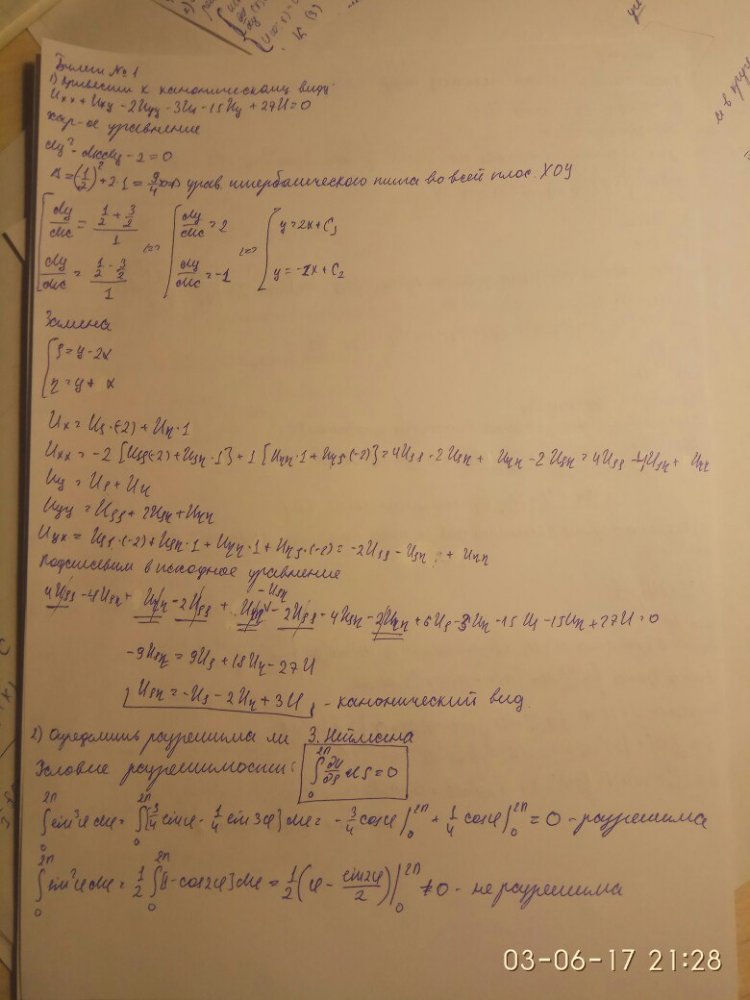 Билет №1
1) Привести к каноническому виду:
Uxx + Uxy - 2Uyy - 3Ux - 15Uy + 27U = 0
хар-ое уравнение
dy² - dxdy - 2 = 0
Δ = (1/2)² + 2·1 = 9/4 урав. гиперболического типа во всей плос. XOY
{ dy/dx = (1/2 + 3/2)/1 <=> { dy/dx = 2 <=> { y = 2x + C₁
{ dy/dx = (1/2 - 3/2)/1 { dy/dx = -1 { y = -1x + C₂
Замена
{ ξ = y - 2x
{ η = y + x
Ux = Uξ·(-2) + Uη·1
Uxx = -2 [Uξξ(-2) + Uξη·1] + 1 [Uηη·1 + Uηξ·(-2)] = 4Uξξ - 2Uξη + Uηη - 2Uξη = 4Uξξ - 4Uξη + Uηη
Uy = Uξ + Uη
Uyy = Uξξ + 2Uξη + Uηη
Uyx = Uξξ·(-2) + Uξη·1 + Uηη·1 + Uηξ·(-2) = -2Uξξ - Uξη + Uηη
Подставим в исходное уравнение
- Uξη
4Uξξ - 4Uξη + Uηη - 2Uξξ + Uηη - 2Uξξ - 4Uξη - 2Uηη + 6Uξ - 3Uη - 15Uξ - 15Uη + 27U = 0
-9Uξη = 9Uξ + 18Uη - 27U
Uξη = -Uξ - 2Uη + 3U - канонический вид.
2) Определить разрешима ли З. Неймана
Условие разрешимости: ∫₀^2π ∂U/∂ρ dS = 0
∫₀^2π sin³φdφ = ∫₀^2π [3/4 sinφ - 1/4 sin3φ] dφ = -3/4 cosφ |₀^2π + 1/4 cosφ |₀^2π = 0 - разрешима
∫₀^2π sin²φdφ = 1/2 ∫₀^2π [1 - cos2φ] dφ = 1/2 (φ - sin2φ/2) |₀^2π ≠ 0 - не разрешима
03-06-17 21:28